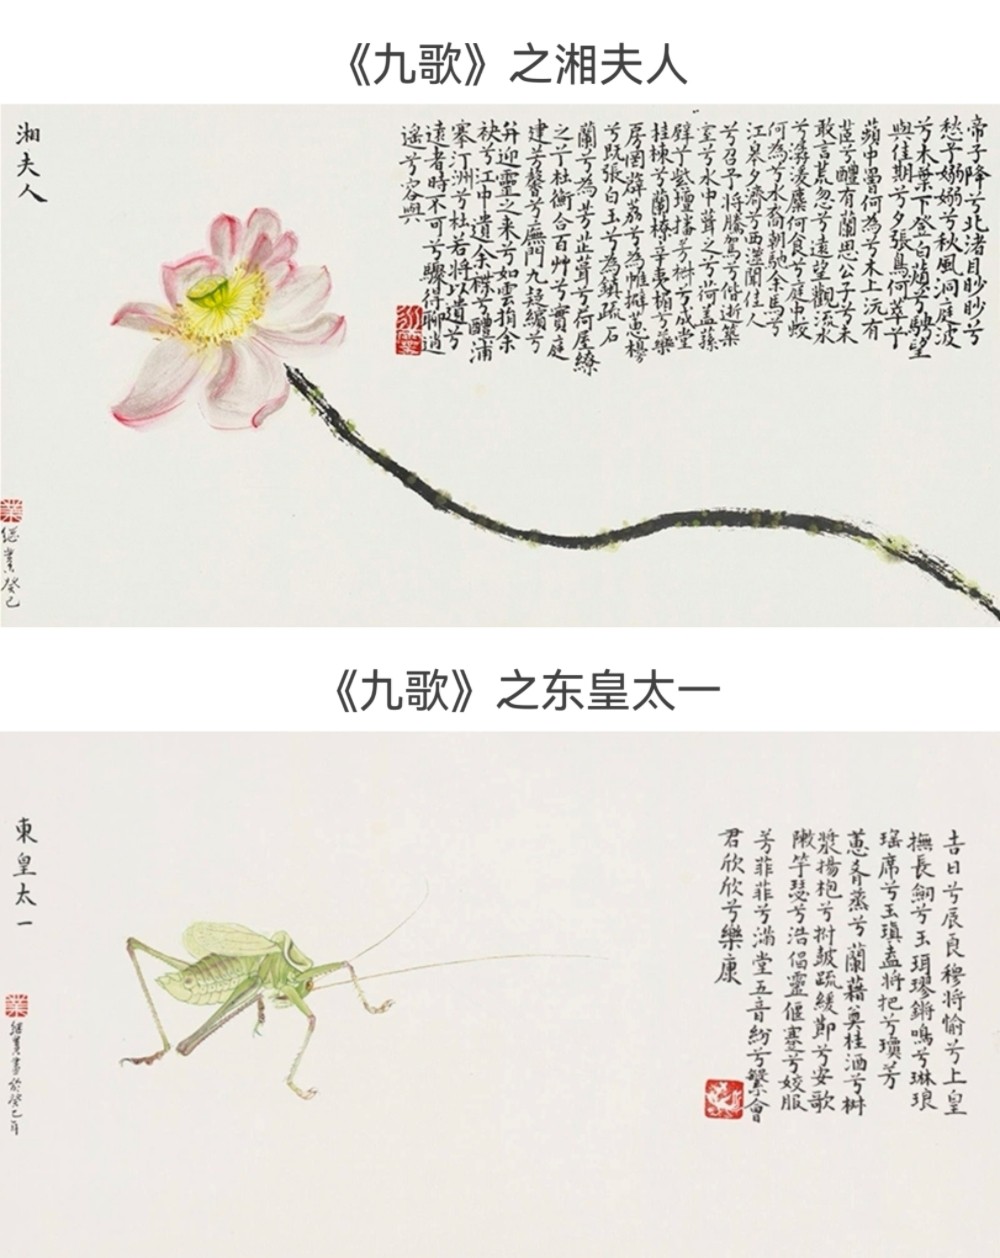 《九歌》之湘夫人
帝子降兮北渚目眇眇兮
愁予嫋嫋兮秋風洞庭波
兮木葉下登白薠兮騁望
與佳期兮夕張鳥何萃乎
蘋中罾何為兮木上沅有
茝兮醴有蘭思公子兮未
敢言荒忽兮遠望觀流水
兮潺湲麋何食兮庭中蛟
何為兮水裔朝馳余馬兮
江皋夕濟兮西澨聞佳人
兮召予將騰駕兮偕逝築
室兮水中葺之兮荷蓋蓀
壁兮紫壇播芳椒兮成堂
桂棟兮蘭橑辛夷楣兮藥
房罔薜荔兮為帷擗蕙櫋
兮既張白玉兮為鎮疏石
蘭兮為芳芷葺兮荷屋繚
之兮杜衡合百艸兮實庭
建芳馨兮廡門九嶷繽兮
并迎靈之來兮如雲捐余
袂兮江中遺余褋兮醴浦
搴汀洲兮杜若將以遺兮
遠者時不可兮驟得聊逍
遙兮容與
湘夫人
業
繼業癸巳
《九歌》之东皇太一
吉日兮辰良穆將愉兮上皇
撫長劍兮玉珥璆鏘鳴兮琳琅
瑤席兮玉瑱盍將把兮瓊芳
蕙肴蒸兮蘭藉奠桂酒兮椒
漿揚枹兮拊鼓疏緩節兮安歌
陳竽瑟兮浩倡靈偃蹇兮姣服
芳菲菲兮滿堂五音紛兮繁會
君欣欣兮樂康
東皇太一
業